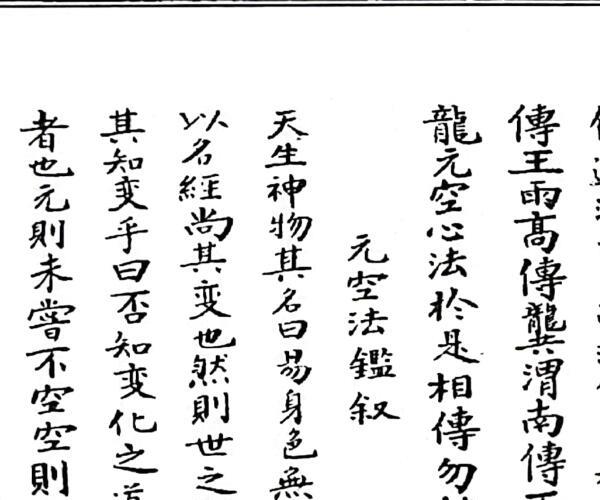 傳王雨高傳龔渭南傳
龍元空心法於是相傳勿
元空法鑑叙
天生神物其名曰易身色無
以名經尚其变也然則世之
其知变乎曰否知变化之道
者也元則未嘗不空空則